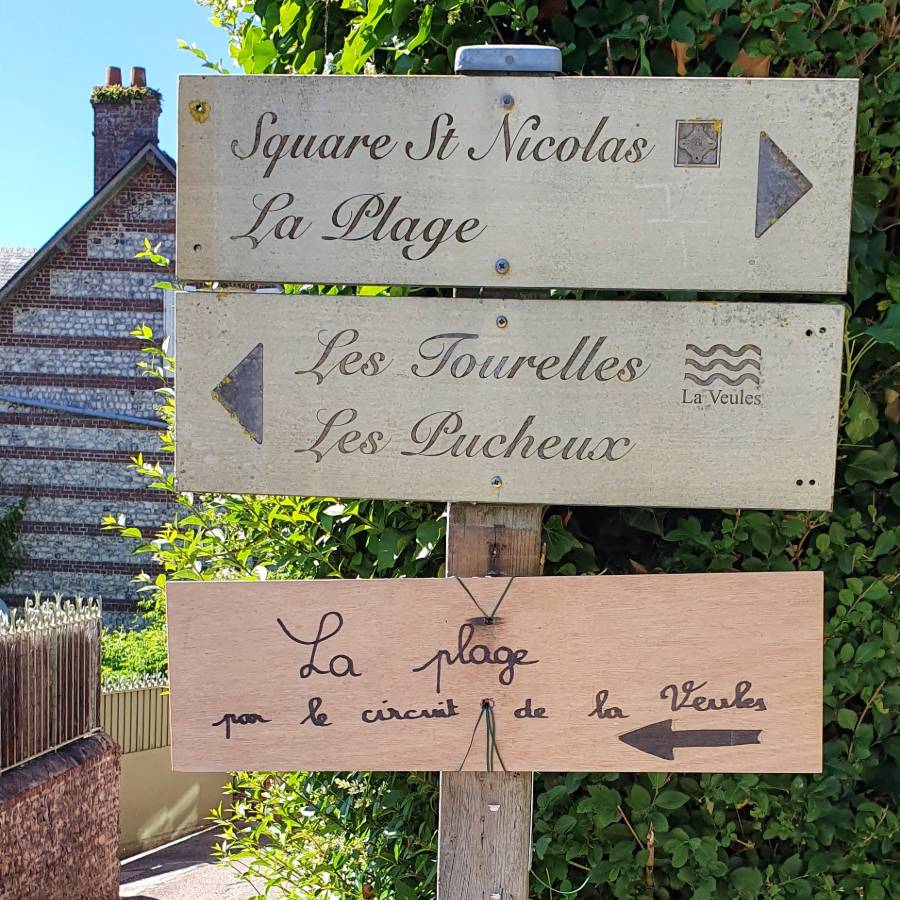 Square St Nicolas
La Plage
Les Tourelles
Les Pucheux
La Veules
La plage
par le circuit de la Veules